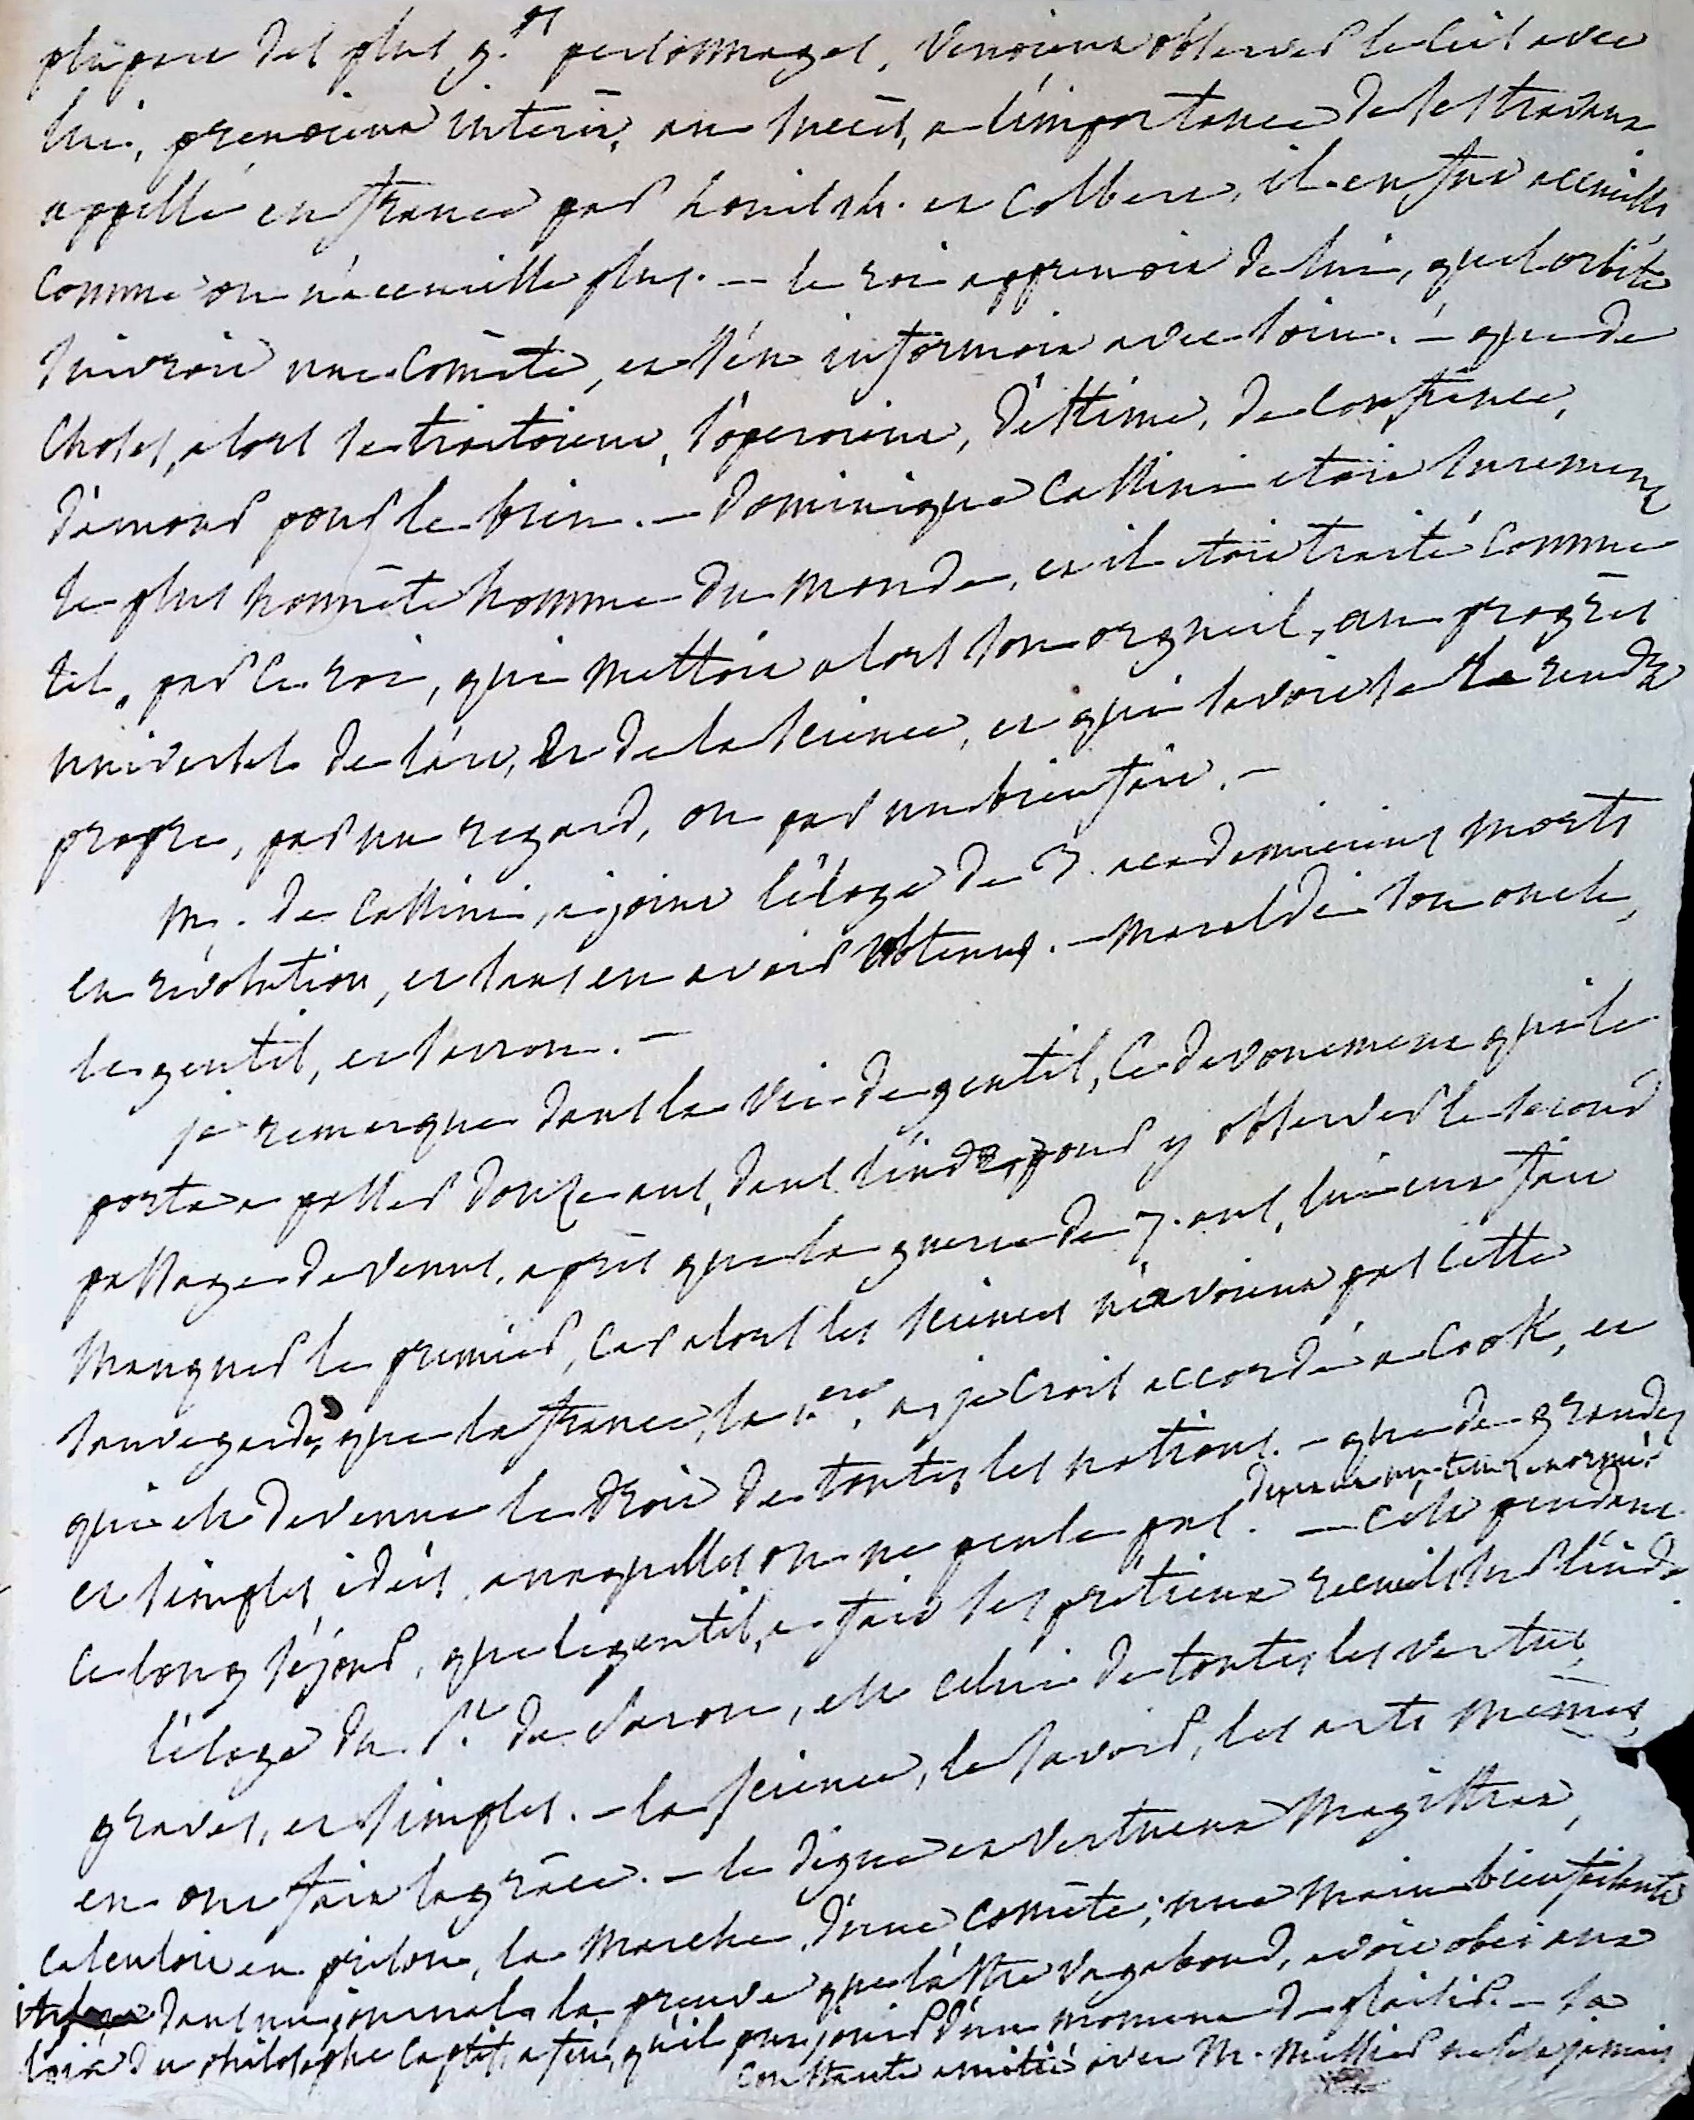 plûpart des plus g.ds personnages, venoient observer le ciel avec
lui, prenoient interêt, au succès, a l'importance de ses travaux
appellé en france par Louis 14. et Colbert, il en fut accueilli
comme on n'accueille plus. — le roi apprenoit de lui, quel orbite
suivroit une comète, et s'en informoit avec soin. — que de
choses, alors se traitoient, s'operoient, d'estime, de confiance,
d'amour pour le bien. — Dominique Cassini etoit surement
le plus honnête homme du monde, et il etoit traité comme
tel, par le roi, qui mettoit alors son orgueil, au progrès
universel de l'art, et de la science, et qui savoit se le rendre
propre, par un regard, ou par un bienfait. —
M. de Cassini, a joint l'éloge de 3. academiciens morts
en révolution, et sans en avoir obtenus. — Maraldi son oncle,
le gentil, et Sarron. —
je remarque dans la vie de gentil, ce devouement qui le
porta a passer douze ans, dans l'inde, pour y observer le second
passage de venus, après que la guerre de 7. ans, lui eut fait
manquer le premier, car alors les sciences n'avoient pas cette
sauvegarde, que la france, la 1.ere, a, je crois accordé a Cook, et
qui est devenue le droit de toutes les nations. — que de grandes
et simples idées auxquelles on ne pense pas. — c'est pendant
ce long séjour, que legentil, a fait ses prétieux recueils sur l'inde.
l'éloge du P.t de Saron, est celui de toutes les vertus,
graves, et simples. — la science, le savoir, les arts mêmes,
en ont fait la grâce. — le digne et vertueux magistrat,
calculoit en prison, la marche d'une comète; une main bienfaisante
dans un journal la preuve que l'astre vagabond, avoit obéi aux
loix du philosophe captif, afin qu'il put jouir d'un moment de plaisir. — sa
constante amitié avec M. Messier ne fut jamais